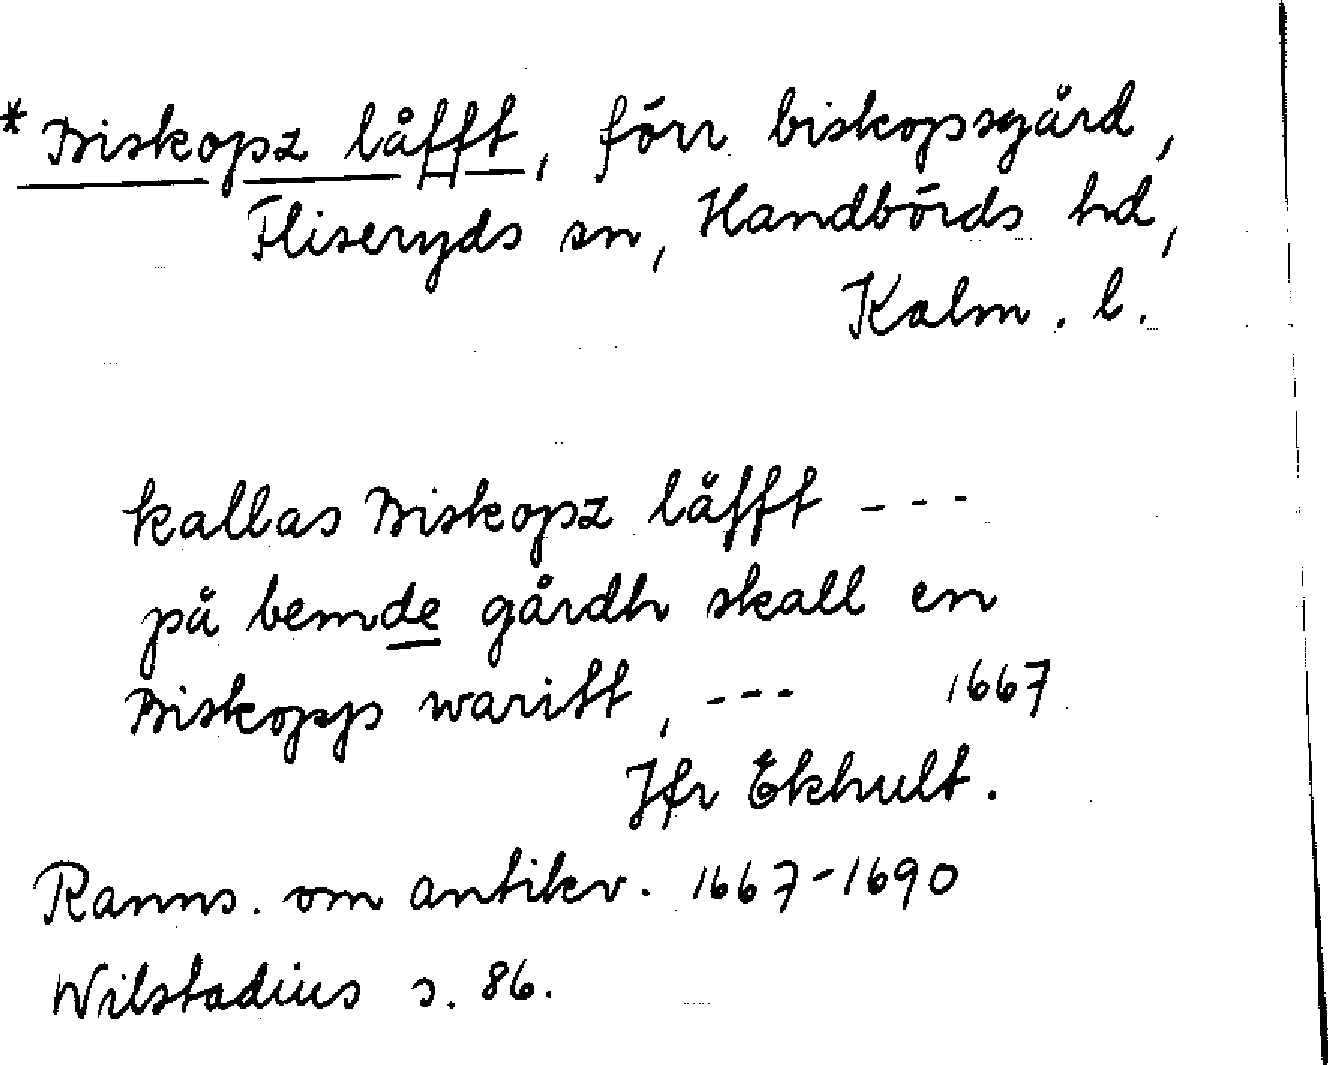 * Biskopz låfft, förr biskopsgård,
Fliseryds sn, Handbörds hd,
Kalm. l.
kallas Biskopz låfft ---
på bemde gårdh skall en
Biskopp waritt, --- 1667
Jfr Ekhult.
Ranns. om antikv. 1667-1690
Wilstadius s. 86.